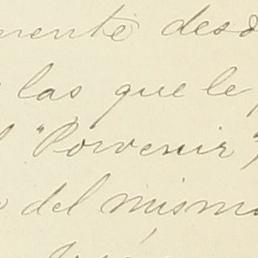 mente desd
las que le
"Porvenir",
del mismo